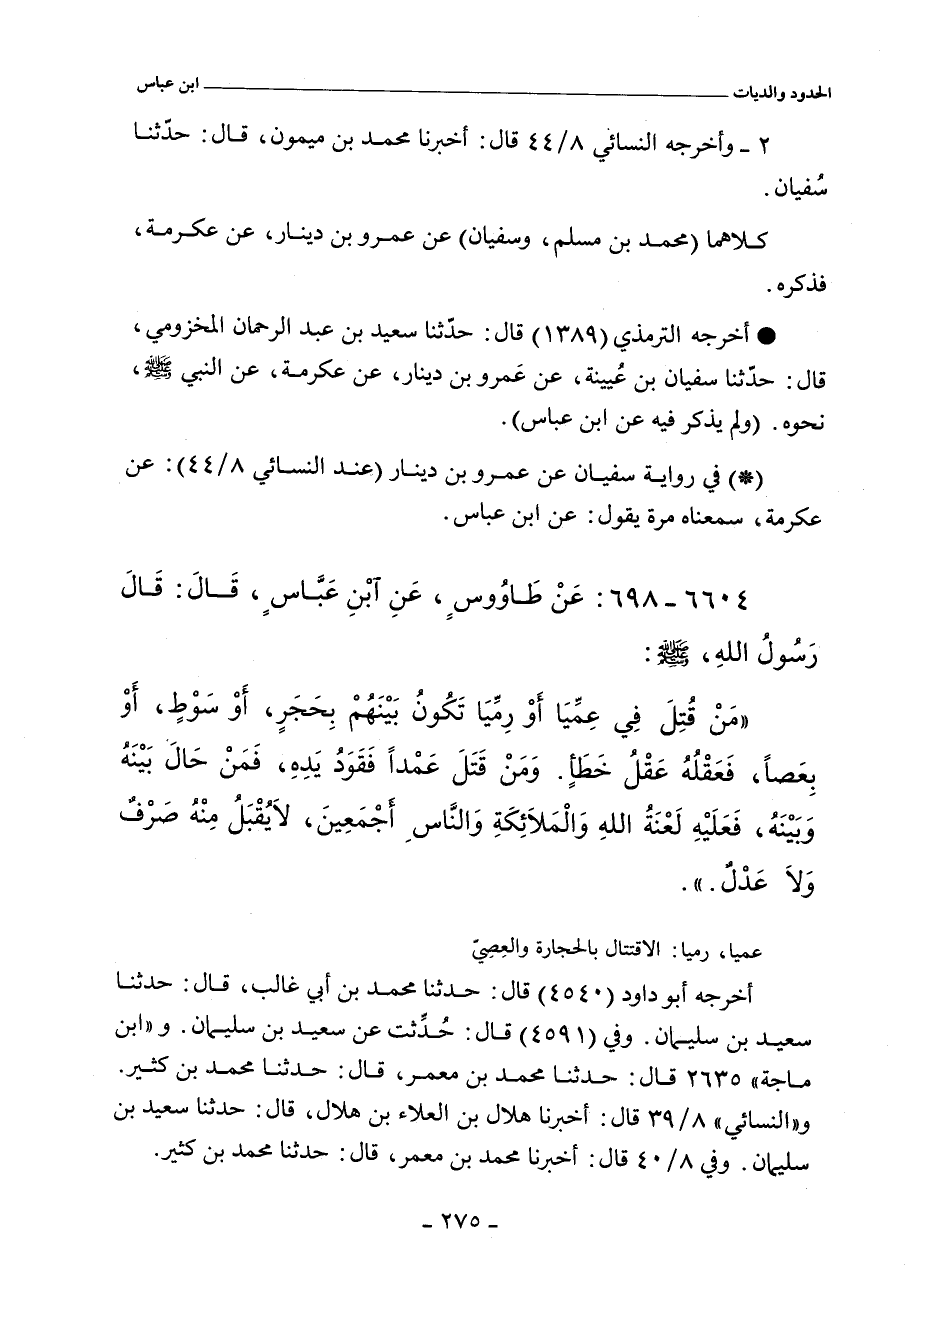 الحدود والديات ــــــــــــــــــــــــــــــــ ابن عباس
٢ ـ وأخرجه النسائي ٤٤/٨ قال: أخبرنا محمد بن ميمون، قال: حدّثنا
سُفيان.
كلاهما (محمد بن مسلم، وسفيان) عن عمرو بن دينار، عن عكرمة،
فذكره.
● أخرجه الترمذي (١٣٨٩) قال: حدّثنا سعيد بن عبد الرحمان المخزومي،
قال: حدّثنا سفيان بن عُيينة، عن عَمرو بن دينار، عن عكرمة، عن النبي ﷺ،
نحوه. (ولم يذكر فيه عن ابن عباس).
(*) في رواية سفيان عن عمرو بن دينار (عند النسائي ٤٤/٨): عن
عكرمة، سمعناه مرة يقول: عن ابن عباس.
٦٦٠٤ ـ ٦٩٨: عَنْ طَاوُوسٍ، عَنِ آبْنِ عَبَّاسٍ، قَالَ: قَالَ
رَسُولُ اللهِ، ﷺ:
«مَنْ قُتِلَ فِي عِمِّيَا أَوْ رِمِّيَا تَكُونُ بَيْنَهُمْ بِحَجَرٍ، أَوْ سَوْطٍ، أَوْ
بِعَصاً، فَعَقْلُهُ عَقْلُ خَطَأٍ. وَمَنْ قَتَلَ عَمْداً فَقَوَدُ يَدِهِ، فَمَنْ حَالَ بَيْنَهُ
وَبَيْنَهُ، فَعَلَيْهِ لَعْنَةُ اللهِ وَالْمَلاَئِكَةِ وَالنَّاسِ أَجْمَعِينَ، لاَيُقْبَلُ مِنْهُ صَرْفٌ
وَلاَ عَدْلٌ.».
عميا، رميا: الاقتتال بالحجارة والعِصِيّ
أخرجه أبو داود (٤٥٤٠) قال: حدثنا محمد بن أبي غالب، قال: حدثنا
سعيد بن سليمان. وفي (٤٥٩١) قال: حُدِّثت عن سعيد بن سليمان. و«ابن
ماجة» ٢٦٣٥ قال: حدثنا محمد بن معمر، قال: حدثنا محمد بن كثير.
و«النسائي» ٣٩/٨ قال: أخبرنا هلال بن العلاء بن هلال، قال: حدثنا سعيد بن
سليمان. وفي ٤٠/٨ قال: أخبرنا محمد بن معمر، قال: حدثنا محمد بن كثير.
ـ ٢٧٥ ـ